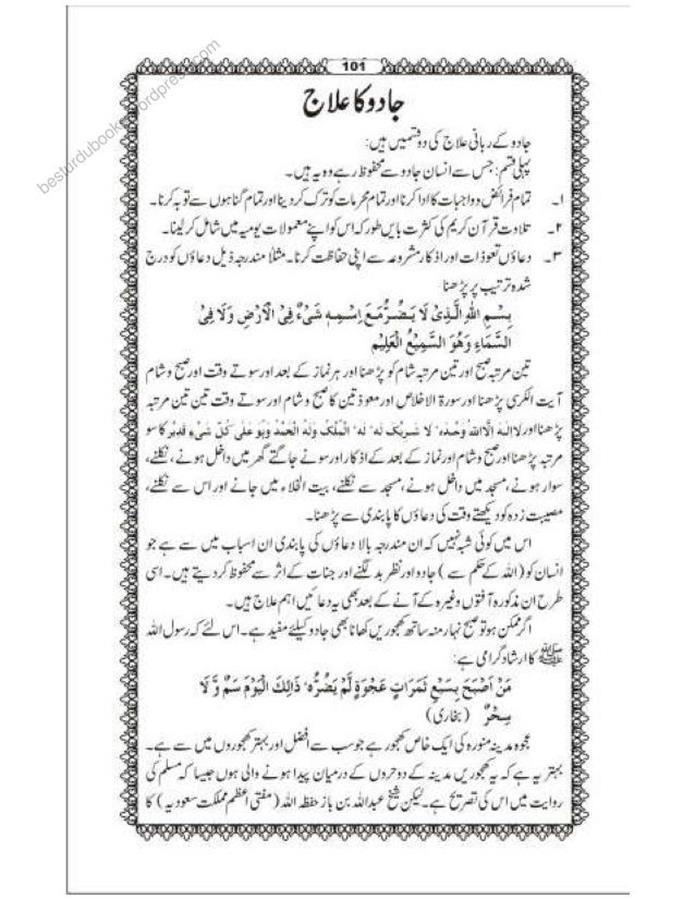 besturdubooks.wordpress.com
101
جادو کا علاج
جادو کے ربانی علاج کی دو قسمیں ہیں:
پہلی قسم: جس سے انسان جادو سے محفوظ رہے وہ یہ ہیں۔
۱۔ تمام فرائض و واجبات کا ادا کرنا اور تمام محرمات کو ترک کر دینا اور تمام گناہوں سے توبہ کرنا۔
۲۔ تلاوت قرآن کریم کی کثرت بایں طور کہ اس کو اپنے معمولات یومیہ میں شامل کر لینا۔
۳۔ دعاؤں تعوذات اور اذکار مشروعہ سے اپنی حفاظت کرنا۔ مثلاً مندرجہ ذیل دعاؤں کو درج
شدہ ترتیب پر پڑھنا
بِسْمِ اللهِ الَّذِىْ لَا يَضُرُّ مَعَ اِسْمِهٖ شَىْءٌ فِى الْاَرْضِ وَلَا فِى
السَّمَاءِ وَهُوَ السَّمِيْعُ الْعَلِيْم
تین مرتبہ صبح اور تین مرتبہ شام کو پڑھنا اور ہر نماز کے بعد اور سوتے وقت اور صبح و شام
آیت الکرسی پڑھنا اور سورۃ الاخلاص اور معوذتین کا صبح و شام اور سوتے وقت تین تین مرتبہ
پڑھنا اور لا الہ الا اللہ وحدہ لا شریک لہ لہ الملک ولہ الحمد وہو علی کل شیء قدیر کا سو
مرتبہ پڑھنا اور صبح و شام اور نماز کے بعد کے اذکار اور سونے جاگتے گھر میں داخل ہونے، نکلنے،
سوار ہونے، مسجد میں داخل ہونے، مسجد سے نکلنے، بیت الخلاء میں جانے اور اس سے نکلنے،
مصیبت زدہ کو دیکھتے وقت کی دعاؤں کا پابندی سے پڑھنا۔
اس میں کوئی شبہ نہیں کہ ان مندرجہ بالا دعاؤں کی پابندی ان اسباب میں سے ہے جو
انسان کو (اللہ کے حکم سے) جادو اور نظر بد لگنے اور جنات کے اثر سے محفوظ کر دیتے ہیں۔ اسی
طرح ان مذکورہ آفتوں وغیرہ کے آنے کے بعد بھی یہ دعائیں اہم علاج ہیں۔
اگر ممکن ہو تو صبح نہار منہ ساتھ کھجوریں کھانا بھی جادو کیلئے مفید ہے۔ اس لئے کہ رسول اللہ
ﷺ کا ارشاد گرامی ہے:
مَنْ اَصْبَحَ بِسَبْعِ ثَمَرَاتٍ عَجْوَةٍ لَّمْ يَضُرُّه ذَالِكَ الْيَوْمَ سَمٌّ وَّ لَا
سِحْرٌ (بخاری)
عجوہ مدینہ منورہ کی ایک خاص کھجور ہے جو سب سے افضل اور بہتر کھجوروں میں سے ہے۔
بہتر یہ ہے کہ یہ کھجوریں مدینہ کے دو حروں کے درمیان پیدا ہونے والی ہوں جیسا کہ مسلم کی
روایت میں اس کی تصریح ہے۔ لیکن شیخ عبداللہ بن باز حفظہ اللہ (مفتی اعظم مملکت سعودیہ) کا